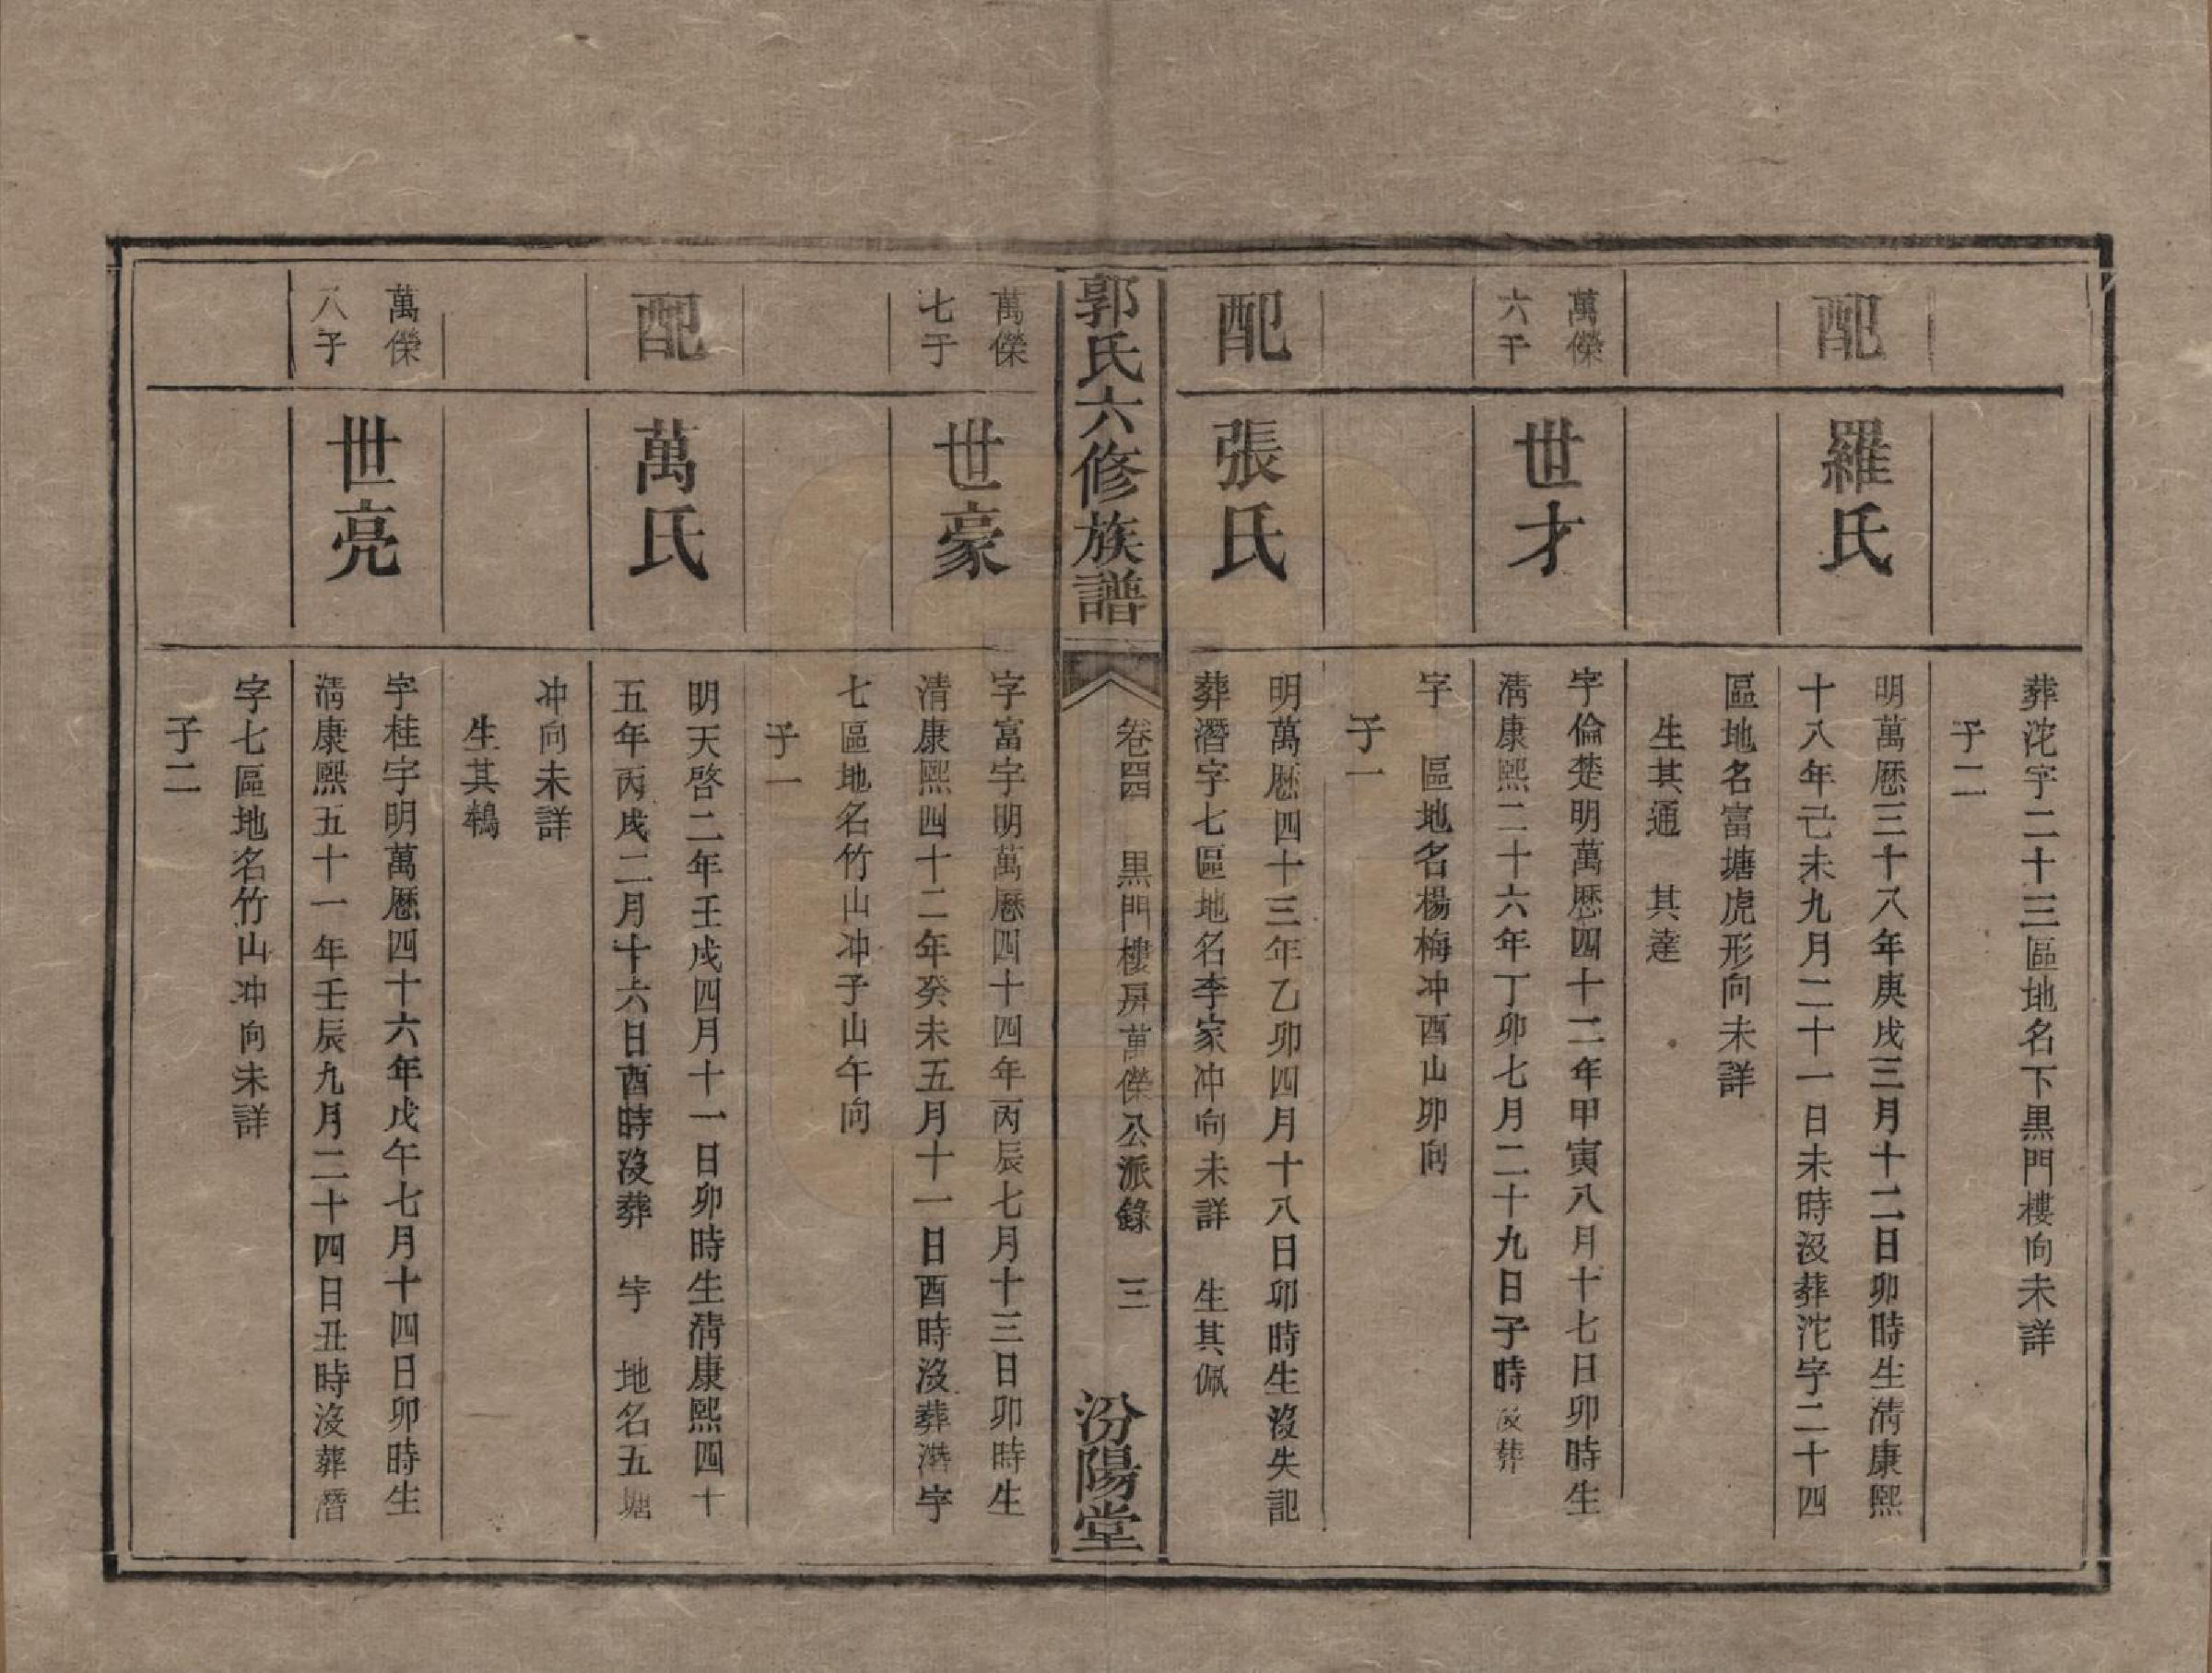 葬沱字二十三區地名下黒門樓向未詳
子二
配
羅氏
明萬厯三十八年庚戌三月十二日卯時生清康熙
十八年己未九月二十一日未時沒葬沱字二十四
區地名富塘虎形向未詳
生其通　其達
萬傑
六子
世才
字倫楚明萬厯四十二年甲寅八月十七日卯時生
清康熙二十六年丁卯七月二十九日子時沒葬
字　區地名楊梅冲酉山卯向
子一
配
張氏
明萬厯四十三年乙卯四月十八日卯時生沒失記
葬潛字七區地名李家冲向未詳　生其佩
郭氏六修族譜
卷四　黒門樓房萬傑公派錄　三
汾陽堂
萬傑
七子
世豪
字富宇明萬厯四十四年丙辰七月十三日卯時生
清康熙四十二年癸未五月十一日酉時沒葬潛字
七區地名竹山冲子山午向
子一
配
萬氏
明天啓二年壬戌四月十一日卯時生清康熙四十
五年丙戌二月十六日酉時沒葬　字　地名五塘
冲向未詳
生其鵫
萬傑
八子
世亮
字桂宇明萬厯四十六年戊午七月十四日卯時生
清康熙五十一年壬辰九月二十四日丑時沒葬潛
字七區地名竹山冲向未詳
子二